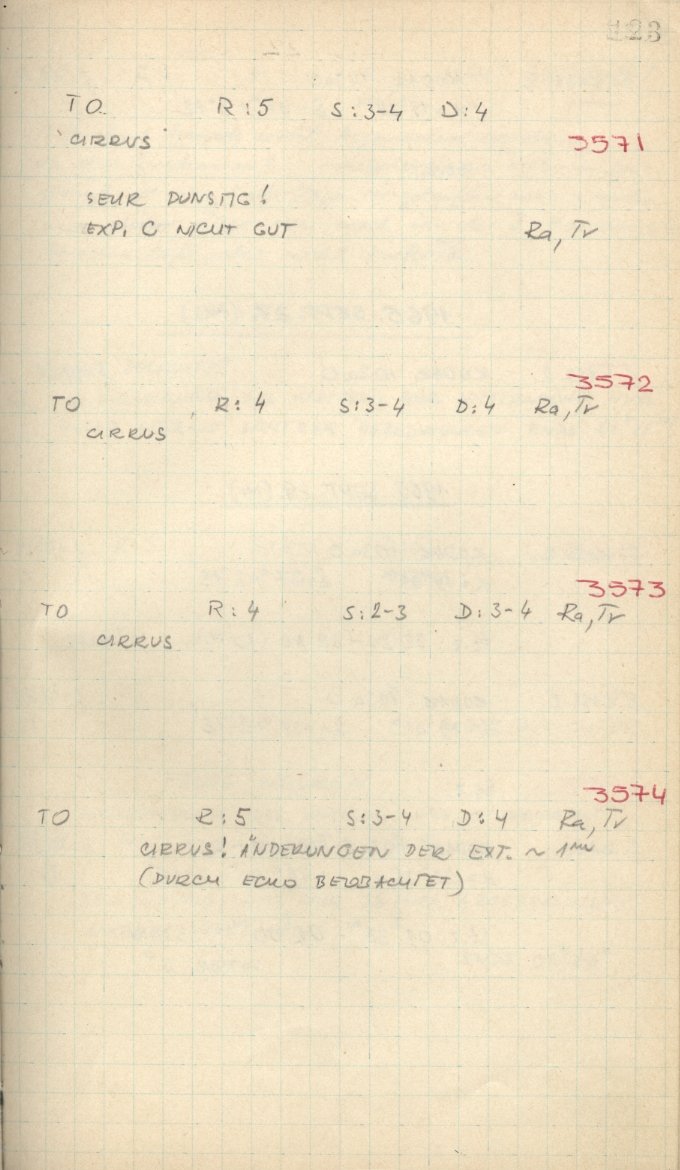 123
TO R:5 S:3-4 D:4
CIRRUS 3571
SEHR DUNSTIG!
EXP. C NICHT GUT Ra, Tr
3572
TO R:4 S:3-4 D:4 Ra, Tr
CIRRUS
3573
TO R:4 S:2-3 D:3-4 Ra, Tr
CIRRUS
3574
TO R:5 S:3-4 D:4 Ra, Tr
CIRRUS! ÄNDERUNGEN DER EXT. ~ 1
(DURCH ECHO BEOBACHTET)